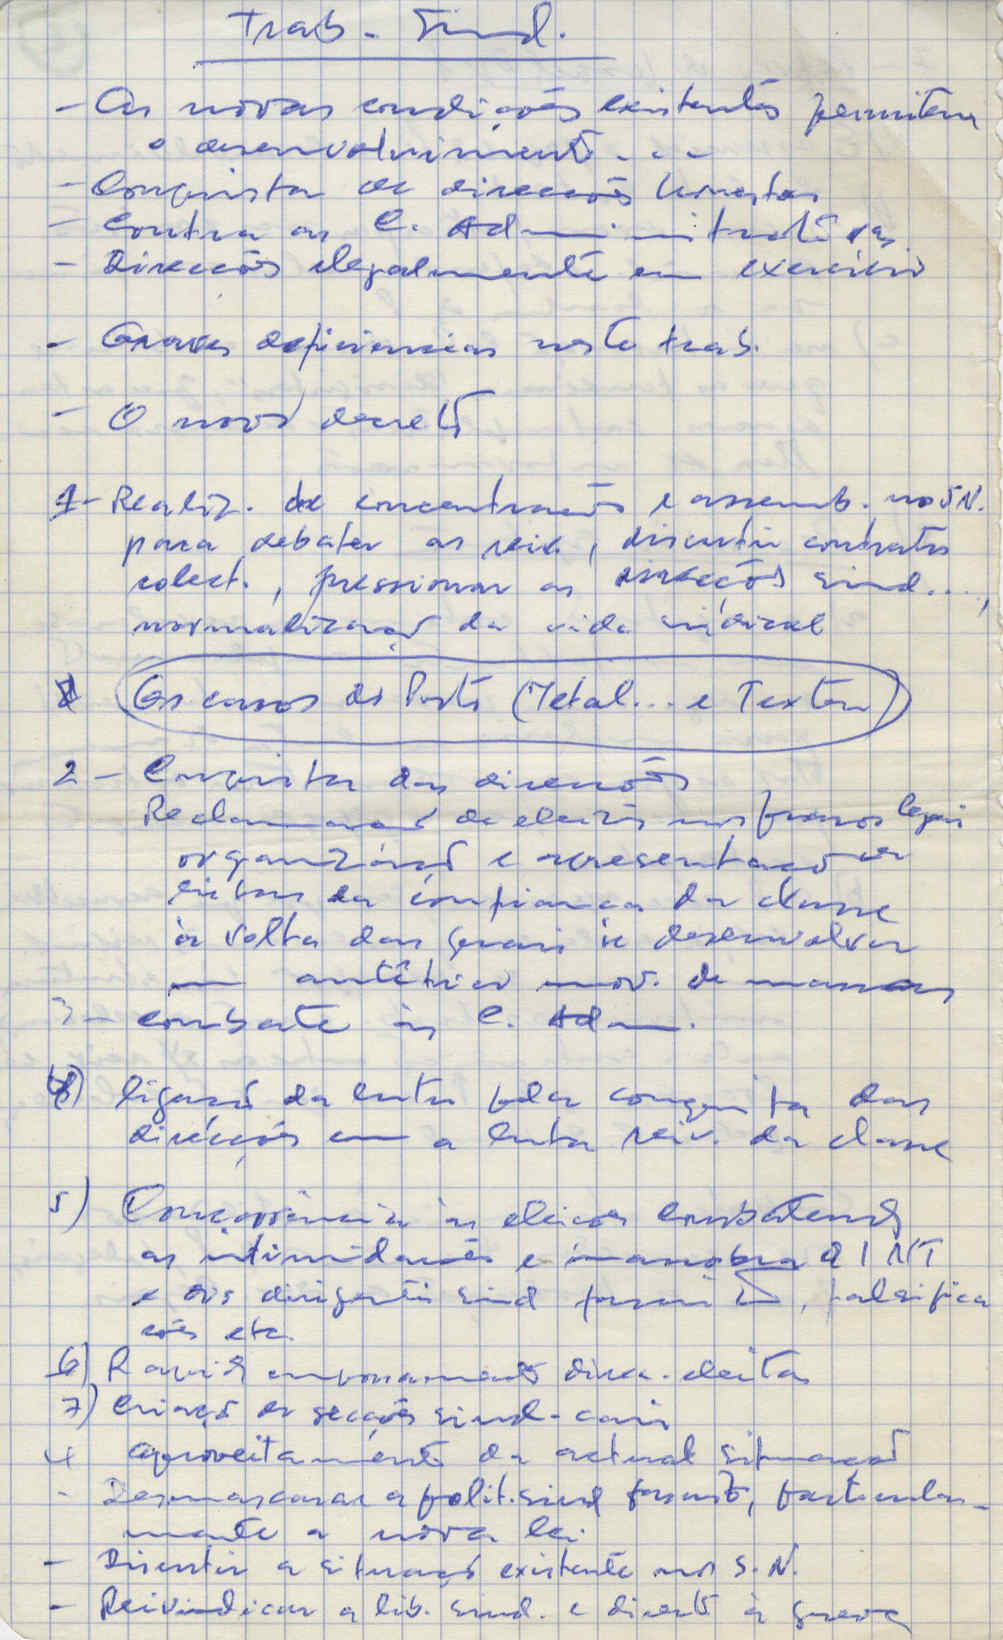 Trab. Sind.
- As novas condições existentes permitem
o desenvolvimento...
- Conquista de direcções honestas
- Contra as C. Administrativas
- Direcções ilegalmente em exercício
- Graves deficiencias neste trab.
- O novo decreto
1- Realiz. de concentrações e assemb. nos S.N.
para debater as reiv., discutir contratos
colect., pressionar as direcções sind....,
normalização da vida sindical
Os casos do Porto (Metal... e Texteis)
2 - Conquista das direcções
Reclamação de eleições nos prazos legais
organização e apresentação de
listas da confiança da classe
à volta das quais se desenvolva
um autêntico mov. de massas
3 - combate às C. Adm.
4) ligação da luta pela conquista das
direcções com a luta reiv. da classe
5) Concorrência às eleições combatendo
as intimidações e manobras do INT
e dos dirigentes sind fascistas, falsifica
ções etc.
6) Rapido empossamento direc. eleitas
7) Criação de secções sind.
aproveitamento da actual situação
- Desmascarar a polit. sind fascista, particular-
mente a nova lei
- Discutir a situação existente nos S.N.
- Reivindicar a lib. sind. e direito à greve